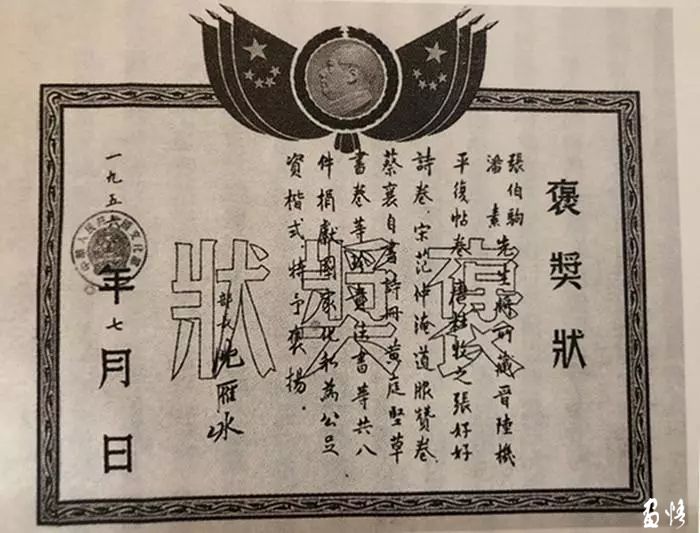 褒獎狀
張伯駒
潘素 先生將所藏晉陸機
平復帖卷唐杜牧之張好好
詩卷、宋范仲淹道服贊卷
蔡襄自書詩冊黃庭堅草
書卷等珍貴法書等共八
件捐獻國家化私為公足
資楷式特予褒揚。
部長沈雁冰
一九五六年七月 日
褒獎狀